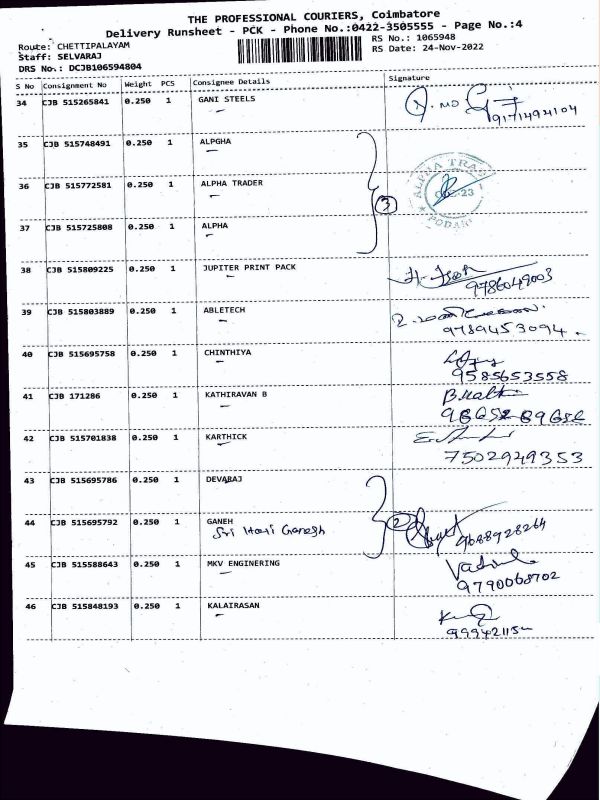 THE PROFESSIONAL COURIERS, Coimbatore
Delivery Runsheet - PCK - Phone No.:0422-3505555 - Page No.:4
Route: CHETTIPALAYAM RS No.: 1065948
Staff: SELVARAJ RS Date: 24-Nov-2022
DRS No.: DCJB106594804
S No Consignment No Weight PCS Consignee Details Signature
34 CJB 515265841 0.250 1 GANI STEELS
9171494104
35 CJB 515748491 0.250 1 ALPGHA
36 CJB 515772581 0.250 1 ALPHA TRADER
3
37 CJB 515725808 0.250 1 ALPHA
38 CJB 515809225 0.250 1 JUPITER PRINT PACK
9786049003
39 CJB 515803889 0.250 1 ABLETECH
9789453094
40 CJB 515695758 0.250 1 CHINTHIYA
9585653558
41 CJB 171286 0.250 1 KATHIRAVAN B
42 CJB 515701838 0.250 1 KARTHICK
7502949353
43 CJB 515695786 0.250 1 DEVARAJ
44 CJB 515695792 0.250 1 GANEH 2
Sri Hari Ganesh 9688928264
45 CJB 515588643 0.250 1 MKV ENGINERING
9790068702
46 CJB 515848193 0.250 1 KALAIRASAN